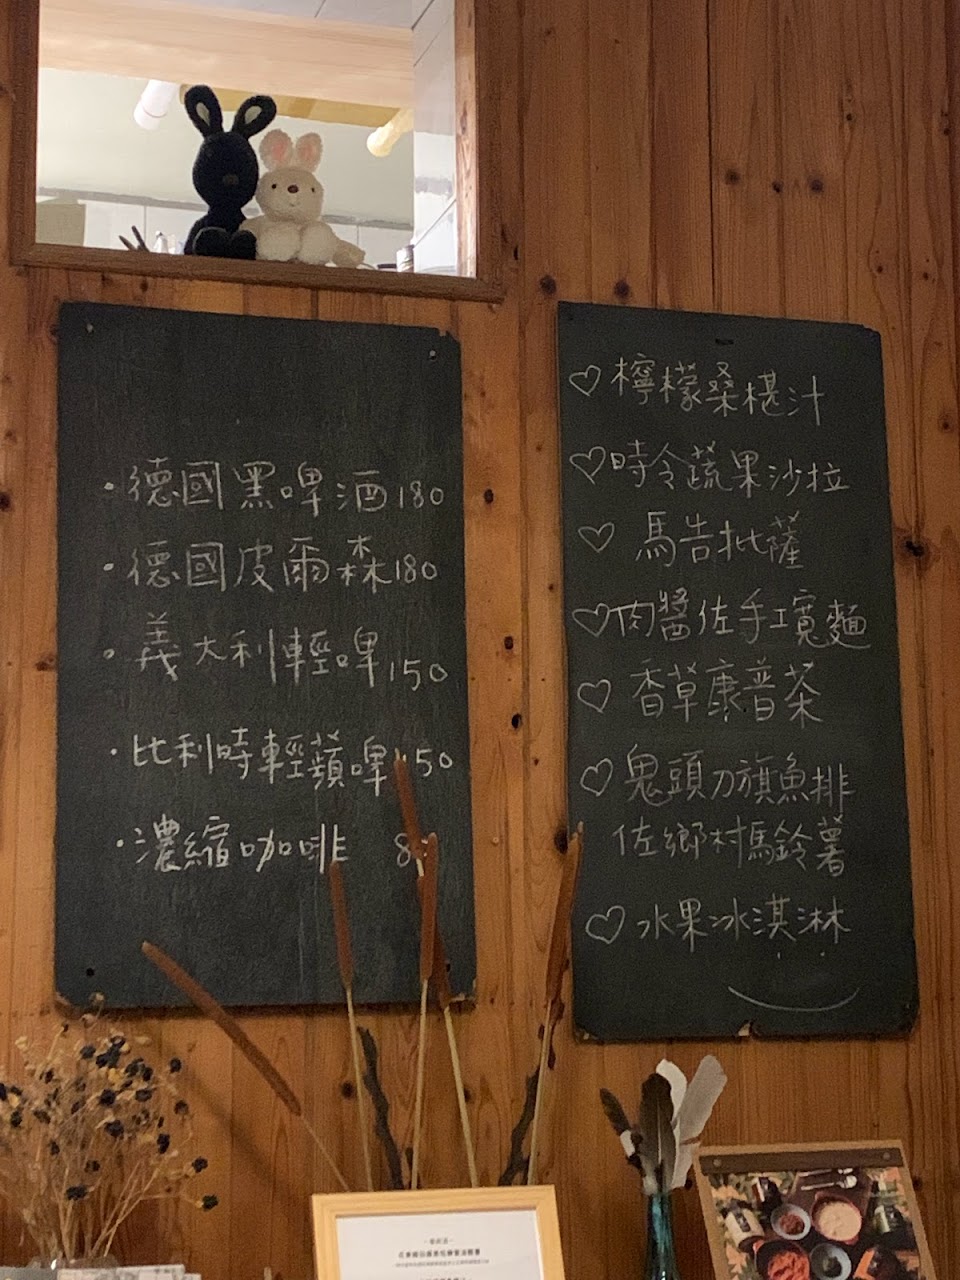 ·德國黑啤酒180
·德國皮爾森180
·義大利輕啤150
·比利時輕蘋啤150
·濃縮咖啡 8
♡檸檬桑椹汁
♡時令蔬果沙拉
♡馬告批薩
♡肉醬佐手工寬麵
♡香草康普茶
♡鬼頭刀旗魚排
佐鄉村馬鈴薯
♡水果冰淇淋